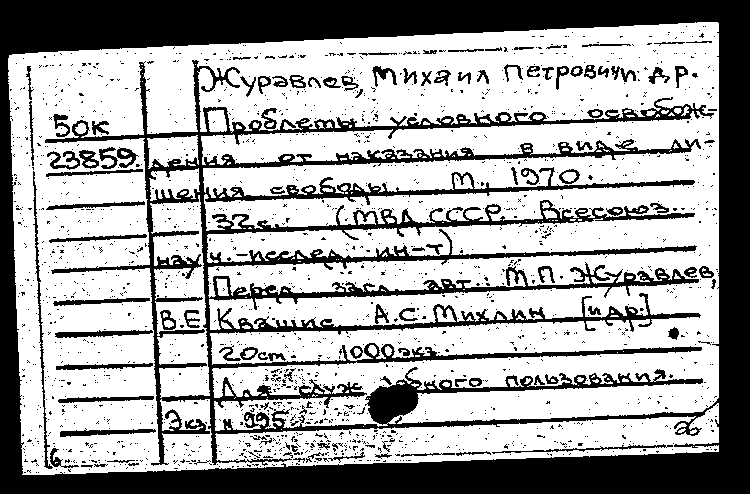 Журавлев, Михаил Петрович и др.
50к Проблемы условного освобож-
23859. дения от наказания в виде ли-
шения свободы. М., 1970.
32 с. (МВД СССР. Всесоюз.
науч.-исслед. ин-т).
Перед загл. авт.: М.П. Журавлев,
В.Е. Квашис, А.С. Михлин [и др.]
20 см. 1000 экз.
Для служебного пользования.
Экз. N 995
6